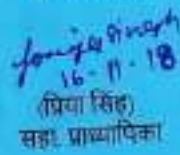 16-11-18
(प्रिया सिंह)
सहा. प्राध्यापिका